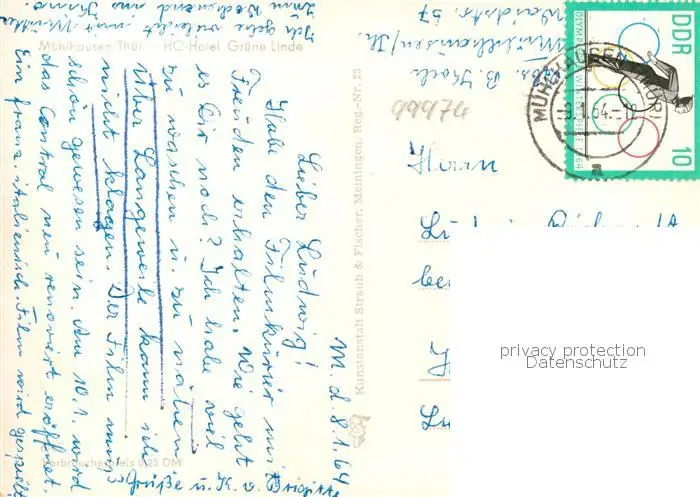 Mühlhausen Thür. - HO-Hotel Grüne Linde
M. d. 8.1.64
Lieber Ludwig!
Habe den Filmkurier mit
Freuden erhalten. Wie geht
es Dir noch? Ich habe viel
zu waschen u. zu nähen
Über Langeweile kann ich
nicht klagen. Der Film muß
schön gewesen sein. Am 10.1. wird
das Central neu renoviert eröffnet.
Ein franz. italienisch. Film wird gespielt
Ich gehe vielleicht mit Mutter
zum Wochenend ins Kino.
Grüße u. K. a.
Verbraucherpreis 0,25 DM
Kunstanstalt Straub & Fischer, Meiningen, Reg.-Nr. 23
Abs. B. Koch
Mühlhausen/Th.
Waidstr. 57
99974
Herrn
DDR
10
MÜHLHAUSEN (THÜR)
privacy protection
Datenschutz